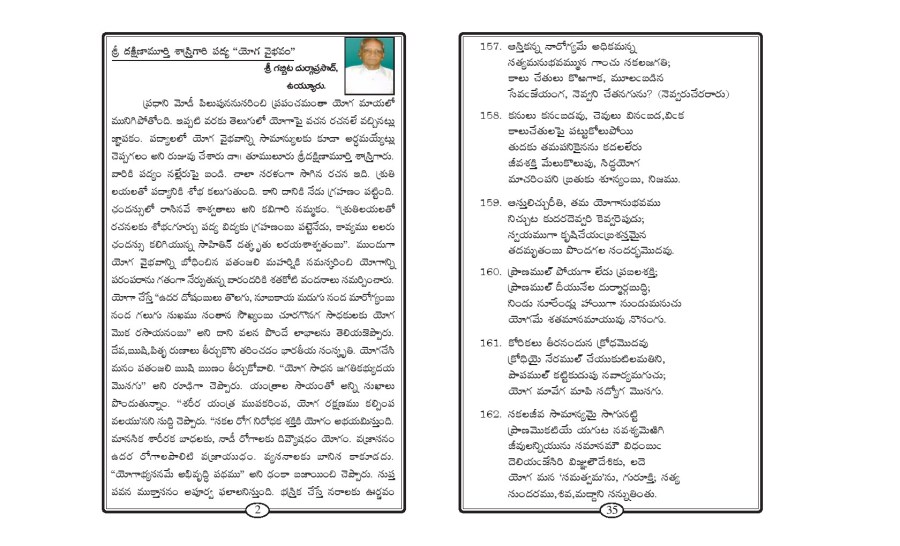 శ్రీ దక్షిణామూర్తి శాస్త్రిగారి పద్య "యోగ వైభవం"
శ్రీ గబ్బిట దుర్గాప్రసాద్,
ఉయ్యూరు.
ప్రధాని మోడీ పిలుపుననుసరించి ప్రపంచమంతా యోగ మాయలో
మునిగిపోతోంది. ఇప్పటి వరకు తెలుగులో యోగాపై వచన రచనలే వచ్చినట్లు
జ్ఞాపకం. పద్యాలలో యోగ వైభవాన్ని సామాన్యులకు కూడా అర్థమయ్యేట్లు
చెప్పగలం అని రుజువు చేశారు డా॥ తూములూరు శ్రీదక్షిణామూర్తి శాస్త్రిగారు.
వారికి పద్యం నల్లేరుపై బండి. చాలా సరళంగా సాగిన రచన ఇది. శ్రుతి
లయలతో పద్యానికి శోభ కలుగుతుంది. కాని దానికి నేడు గ్రహణం పట్టింది.
ఛందస్సులో రాసినవే శాశ్వతాలు అని కవిగారి నమ్మకం. "శ్రుతిలయలతో
రచనలకు శోభఁగూర్చు పద్య విద్యకు గ్రహణంబు పట్టెనేడు, కావ్యము లలరు
ఛందస్సు కలిగియున్న సాహితిన్ దత్కృతు లరయశాశ్వతంబు". ముందుగా
యోగ వైభవాన్ని బోధించిన పతంజలి మహర్షికి నమస్కరించి యోగాన్ని
పరంపరాను గతంగా నేర్పుతున్న వారందరికి శతకోటి వందనాలు సమర్పించారు.
యోగా చేస్తే "ఉదర దోషంబులు తొలగు, నూబకాయ మదుగు నంద మారోగ్యంబు
నంద గలుగు సుఖము సంతాన సౌఖ్యంబు చూరగొనగ సాధకులకు యోగ
మొక రసాయనంబు" అని దాని వలన పొందే లాభాలను తెలియజెప్పారు.
దేవ,ఋషి,పితృ రుణాలు తీర్చుకొని తరించదం భారతీయ సంస్కృతి. యోగచేసి
మనం పతంజలి ఋషి ఋణం తీర్చుకోవాలి. "యోగ సాధన జగతికభ్యుదయ
మొసగు" అని రూఢిగా చెప్పారు. యంత్రాల సాయంతో అన్ని సుఖాలు
పొందుతున్నాం. "శరీర యంత్ర ముపకరింప, యోగ రక్షణము కల్పింప
వలయు'నని సుద్ది చెప్పారు. "సకల రోగ నిరోధక శక్తికి యోగం అభయమిస్తుంది.
మానసిక శారీరక బాధలకు, నాడీ రోగాలకు దివ్యౌషధం యోగం. వజ్రాసనం
ఉదర రోగాలపాలిటి వజ్రాయుధం. వ్యసనాలకు బానిస కాకూడదు.
"యోగాభ్యసనమే అభివృద్ధి పథము" అని ఢంకా బజాయించి చెప్పారు. సుప్త
పవన ముక్తాసనం అపూర్వ ఫలాలనిస్తుంది. భస్త్రిక చేస్తే నరాలకు ఊర్ధ్వం
2
157. ఆస్తికన్న నారోగ్యమే అధికమన్న
సత్యమనుభవమ్మున గాంచు సకలజగతి;
కాలు చేతులు కొఱగాక, మూలఁబడిన
సేవఁజేయంగ, నెవ్వని చేతనగును? (నెవ్వరుచేరరారు)
158. కనులు కనఁబడవు, చెవులు వినఁబడ,విఁక
కాలుచేతులపై పట్టుకోలుపోయి
తుదకు తమపనికైనను కదలలేరు
జీవశక్తి మేలుకొలుపు, సిద్ధయోగ
మాచరింపని బ్రతుకు శూన్యంబు, నిజము.
159. ఆస్తులిచ్చురీతి, తమ యోగానుభవము
నిచ్చుట కుదరదెవ్వరి కెవ్వరెపుడు;
స్వయముగా కృషిచేయఁబ్రశస్తమైన
తదమృతంబు పొందగల సందర్భమొదవు.
160. ప్రాణముల్ పోయగా లేడు ప్రబలశక్తి;
ప్రాణముల్ దీయునేల దుర్మార్గబుద్ధి;
నిండు నూరేండ్లు హాయిగా నుండుమనుచు
యోగమే శతమానమాయువు నొసంగు.
161. కోరికలు తీరనందున క్రోధమొదవు
క్రోధియై నేరముల్ చేయుకుటిలమతిని,
పాపముల్ కట్టికుదుపు నవార్యమగుచు;
యోగ మావేగ మాపి సద్యోగ మొసగు.
162. సకలజీవ సామాన్యమై సాగునట్టి
ప్రాణమొకటియే యగుట నవశ్యమెఱిగి
జీవులన్నియును సమానమౌ విధంబుఁ
దెలియఁజేసిరి విజ్ఞులౌదేశికు, లదె
యోగ మన 'సమత్వమ'ను, గురూక్తి; సత్య
సుందరము,శివ,మద్దాని సన్నుతింతు.
35